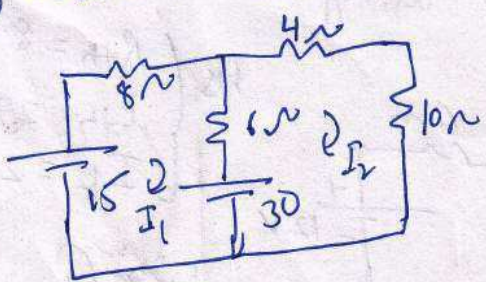 4 ~
8 ~
6 ~
10 ~
I₂
15
I₁
30